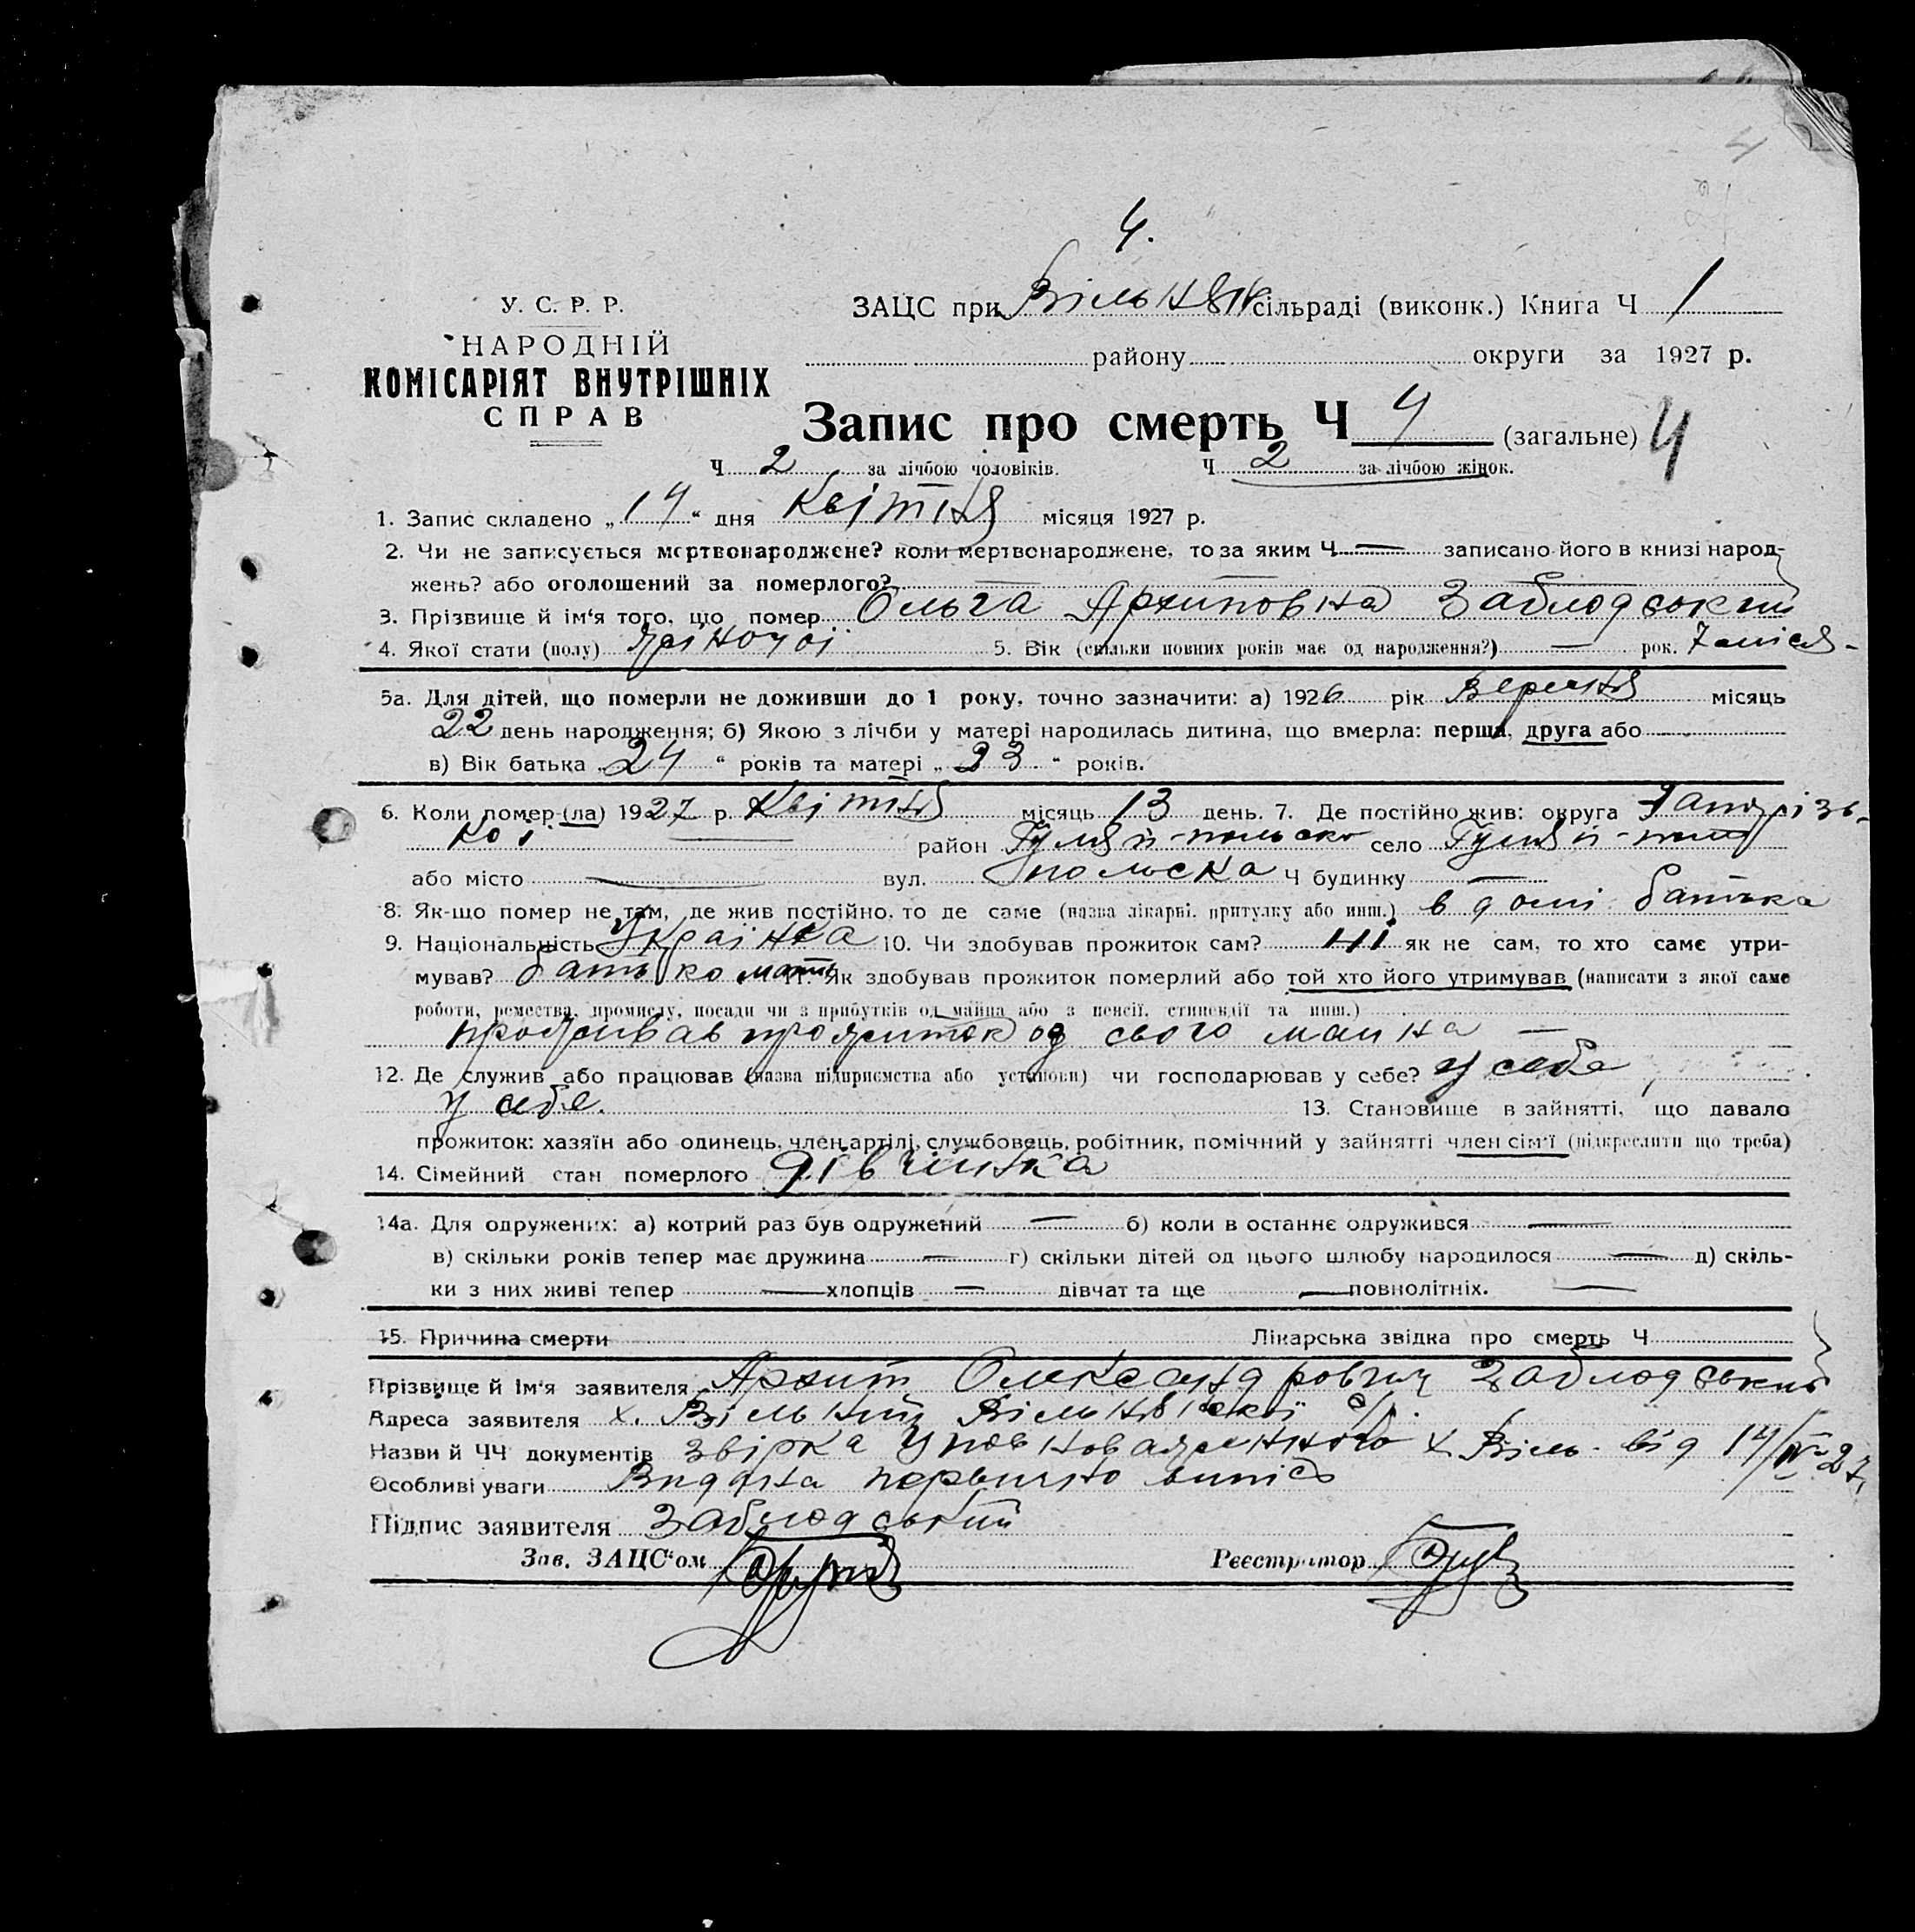 4
4.
У. С. Р. Р.
НАРОДНІЙ
КОМІСАРІЯТ ВНУТРІШНІХ
СПРАВ
ЗАЦС при Вільнян сільраді (виконк.) Книга Ч 1
району округи за 1927 р.
Запис про смерть Ч 4 (загальне) 4
Ч 2 за лічбою чоловіків. Ч 2 за лічбою жінок.
1. Запис складено „14“ дня Квітня місяця 1927 р.
2. Чи не записується мертвонароджене? коли мертвонароджене, то за яким Ч — записано його в книзі народ-
жень? або оголошений за померлого? — — —
3. Прізвище й ім'я того, що помер Ольга Архиповна Заблодський
4. Якої стати (полу) жіночої 5. Вік (скільки повних років має од народження?) — рок. 7 міся-
5а. Для дітей, що померли не доживши до 1 року, точно зазначити: а) 1926 рік Вересня місяць
22 день народження; б) Якою з лічби у матері народилась дитина, що вмерла: перша, друга або
в) Вік батька „24“ років та матері „23.“ років.
6. Коли помер (ла) 1927 р. Квітня місяць 13 день. 7. Де постійно жив: округа Запорізь-
кої — район Гуляй-польско село Гуляй-поля
або місто — вул. польска Ч будинку —
8. Як-що помер не там, де жив постійно, то де саме (назва лікарні, притулку або инш.) в домі батька
9. Національність Українка 10. Чи здобував прожиток сам? ні як не сам, то хто саме утри-
мував? батько мати 11. Як здобував прожиток померлий або той хто його утримував (написати з якої саме
роботи, ремества, промислу, посади чи з прибутків од майна або з пенсії, стипендії та инш.)
проживав прожиток од свого маина —
12. Де служив або працював (назва підприємства або установи) чи господарював у себе? у себе
у себе. 13. Становище в зайнятті, що давало
прожиток: хазяїн або одинець, член артілі, службовець, робітник, помічний у зайнятті член сім'ї (підкреслити що треба)
14. Сімейний стан померлого дівчинка
14а. Для одружених: а) котрий раз був одружений — б) коли в останнє одружився —
в) скільки років тепер має дружина — г) скільки дітей од цього шлюбу народилося — д) скіль-
ки з них живі тепер — хлопців — дівчат та ще — повнолітніх. —
15. Причина смерти Лікарська звідка про смерть Ч
Прізвище й Ім'я заявителя Архип Олександрович Заблодський
Адреса заявителя х. Вільний Вільнянскої с/р.
Назви й ЧЧ документів звірка Уповноваженного х Віль. від 14/IV-27
Особливі уваги Видана первично випісь
Підпис заявителя Заблодський
Зав. ЗАЦС'ом Реєстратор